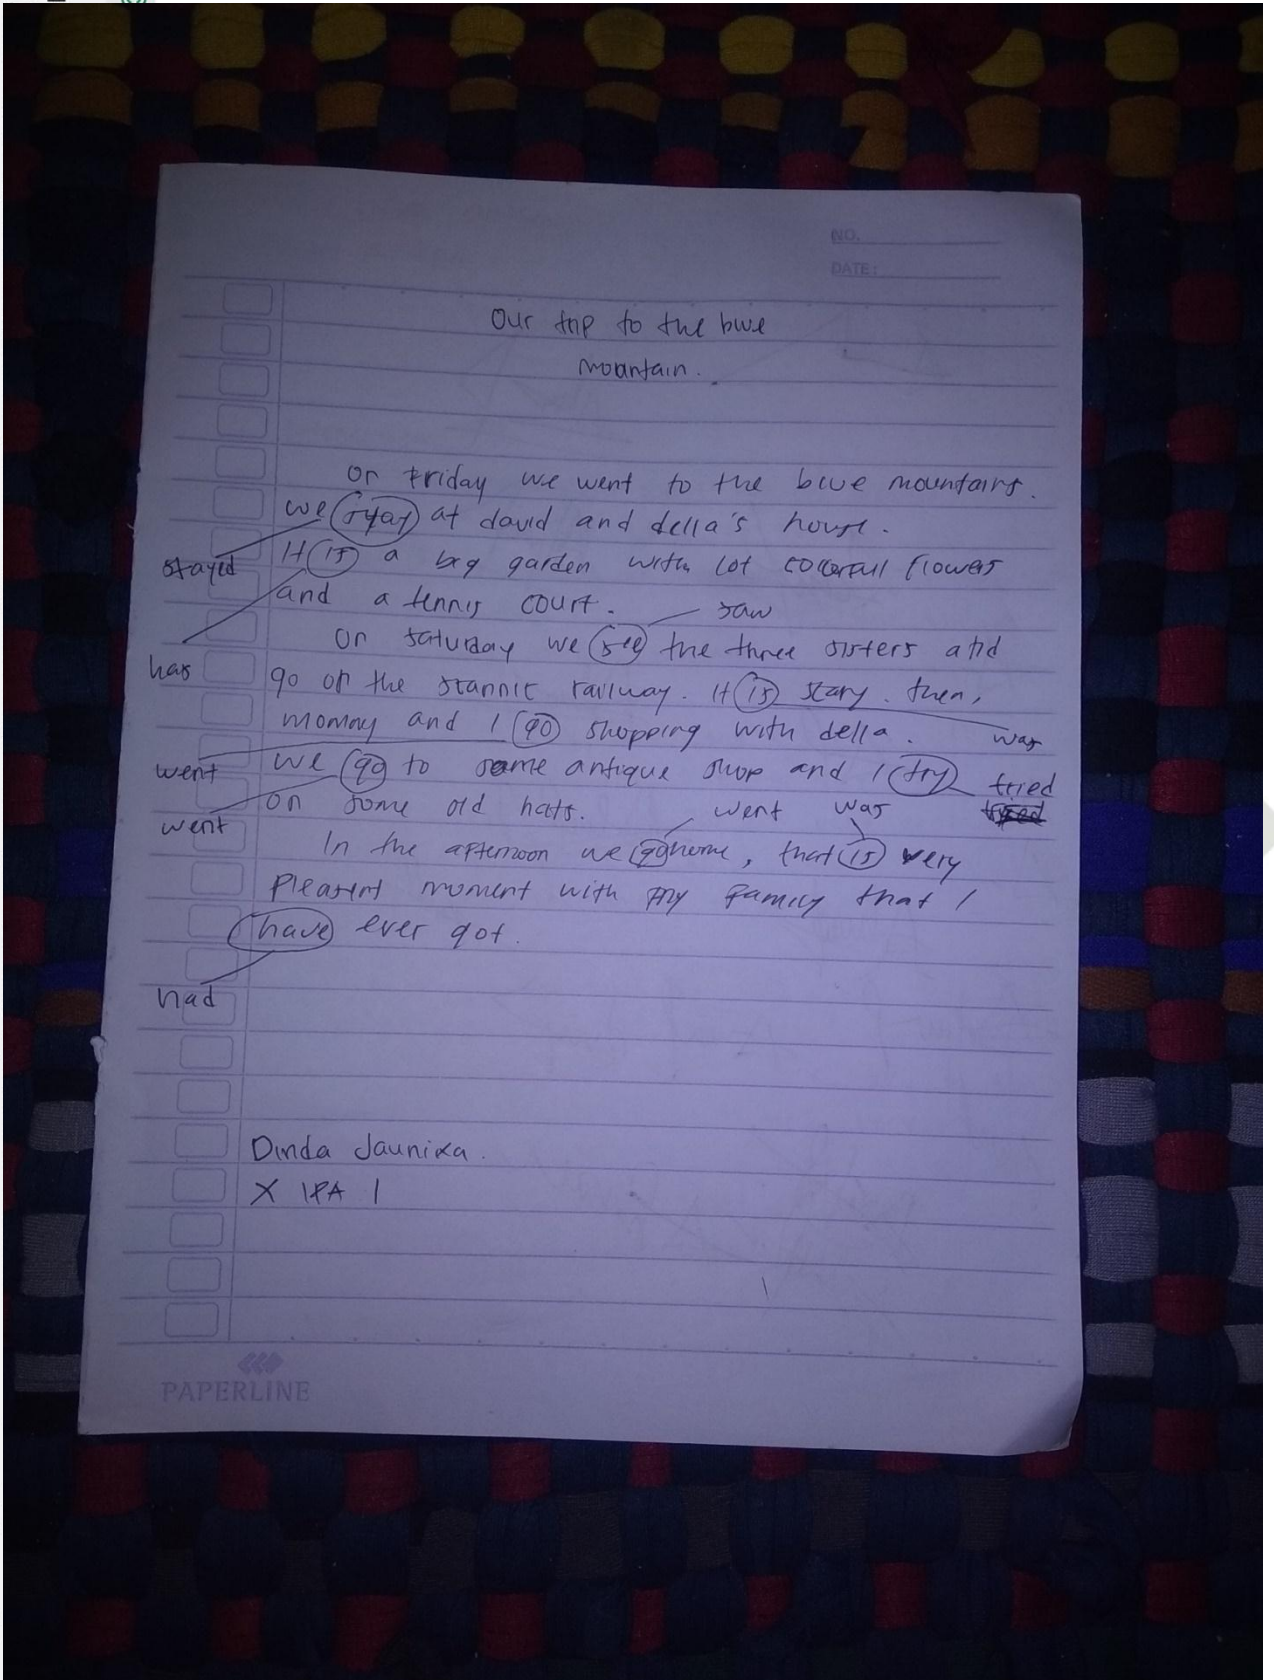 NO.
DATE:
Our trip to the blue
mountain.
On Friday we went to the blue mountains.
we stay at david and della's house.
stayed
It is a big garden with lot colorfull flowers
and a tennis court.
saw
On saturday we see the three sisters and
has
go on the scannic railway. It is scary. then,
mommy and I go shopping with della.
was
went
we go to some antique shop and I try
tried
on some old hats.
went was
went
In the afternoon we go home, that is very
pleasent moment with my family that I
have ever got.
had
Dinda Jaunika.
X IPA 1
PAPERLINE